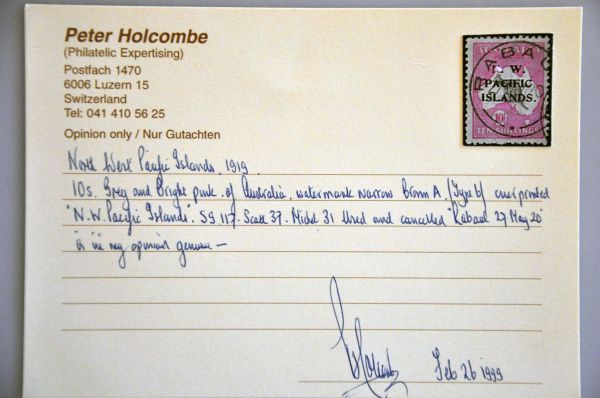 Peter Holcombe
(Philatelic Expertising)
Postfach 1470
6006 Luzern 15
Switzerland
Tel: 041 410 56 25
Opinion only / Nur Gutachten
RABAUL
AUSTRALIA
N. W.
PACIFIC
ISLANDS.
10/-
TEN SHILLINGS
North West Pacific Islands. 1919.
10s. Grey and Bright pink of Australia. watermark narrow Crown A. (Type b) overprinted
"N.W. Pacific Islands". SG 117. Scott 37. Michel 31 Used and cancelled "Rabaul 27 May 20"
is in my opinion genuine —
Feb 26 1999